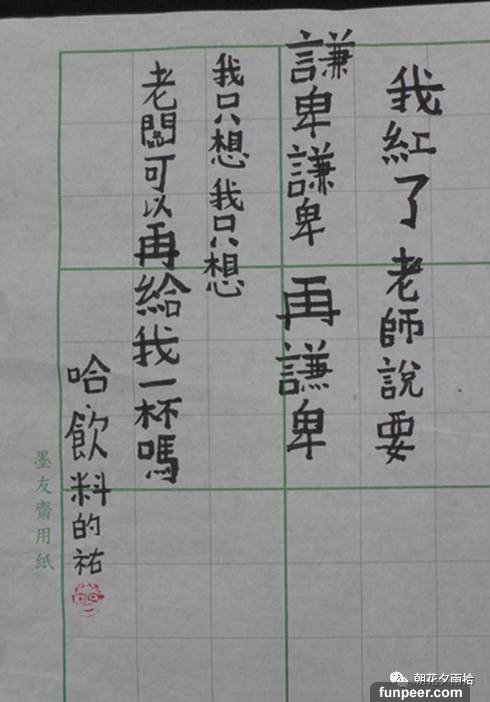 我紅了老師說要
謙卑謙卑再謙卑
我只想我只想
老闆可以再給我一杯嗎
哈飲料的祐
墨友齋用紙
朝花夕雨拾
funpeer.com